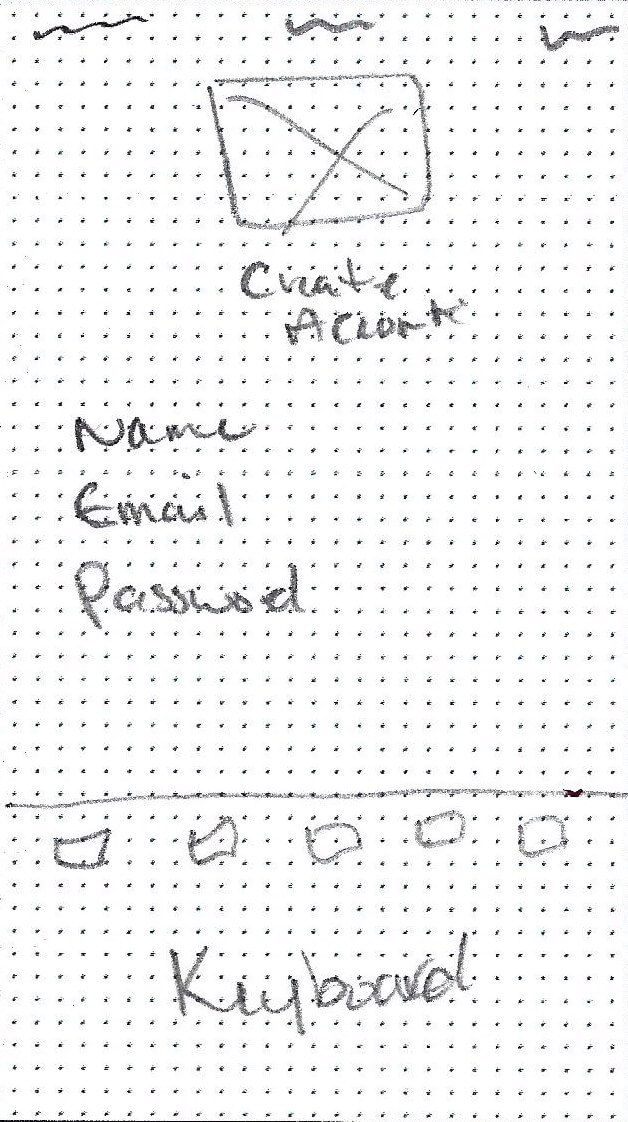 Create
Account
Name
Email
Password
Keyboard